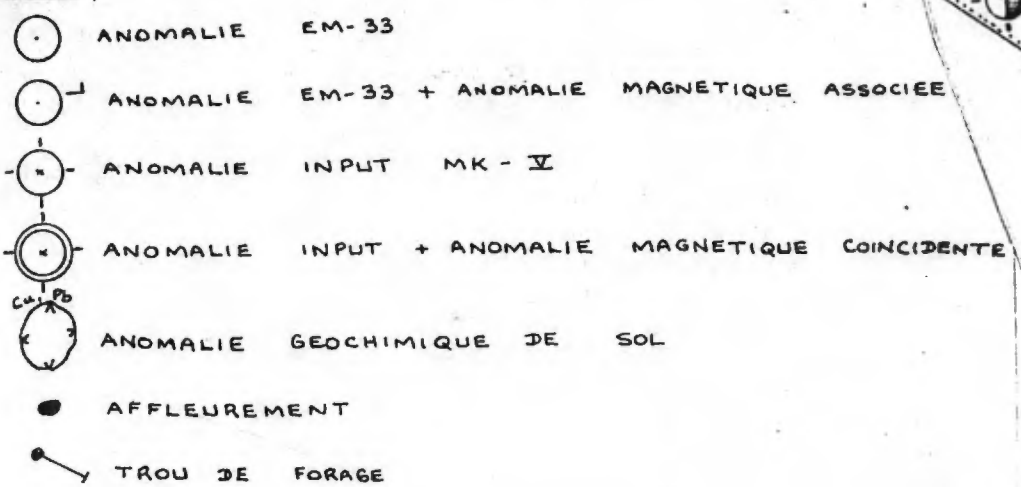 ANOMALIE EM-33
ANOMALIE EM-33 + ANOMALIE MAGNETIQUE ASSOCIEE
ANOMALIE INPUT MK-V
ANOMALIE INPUT + ANOMALIE MAGNETIQUE COINCIDENTE
Cu, Pb
ANOMALIE GEOCHIMIQUE DE SOL
AFFLEUREMENT
TROU DE FORAGE